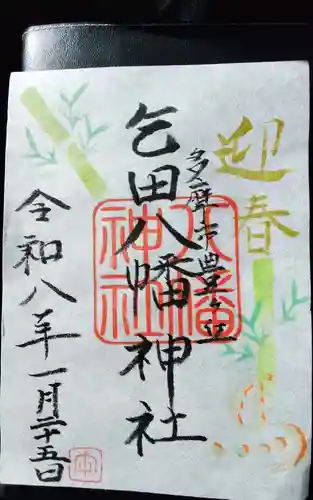 迎春
多摩市豊ヶ丘
乞田八幡神社
八幡神社
令和八年一月二十五日